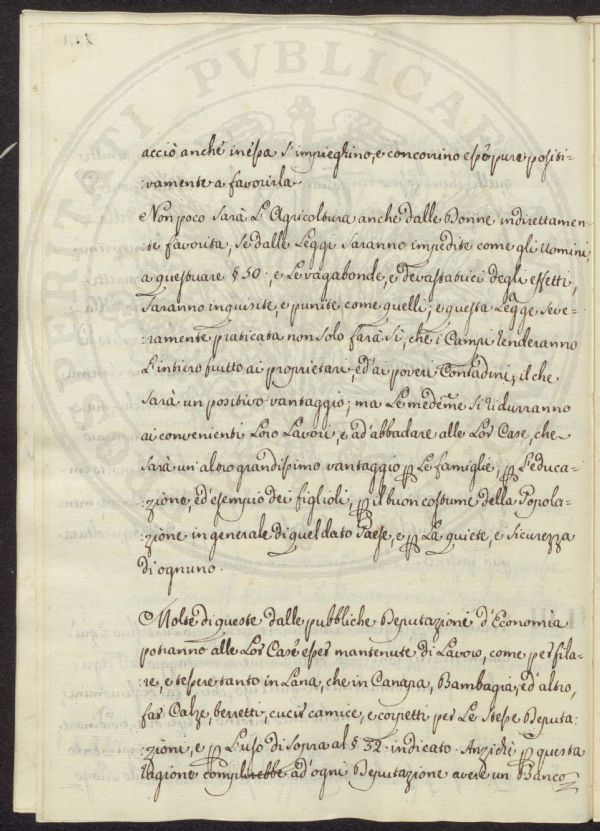 PROSPERITATI PVBLICAE
acciò anche in essa s'impieghino, e concorrino esse pure positi-
:vamente a favorirla.
Non poco sarà L'Agricoltura anche dalle Donne indirettamen-
:te favorita, se dalle Leggi saranno impedite come gli Uomini,
a questuare § 50:, e Le vagabonde, e devastatrici degli effetti,
saranno inquisite, e punite come quelli; e questa Legge seve-
:ramente praticata non solo farà sì, che i Campi renderanno
L'intiero frutto ai proprietari, ed'ai poveri Contadini, il che
sarà un positivo vantaggio; ma Le medeme si ridurranno
ai convenienti Loro Lavori, e ad'abbadare alle Lor Case, che
sarà un'altro grandissimo vantaggio per Le famiglie, per L'educa-
:zione, ed'esempio dei figlioli, per il buon costume della Popola-
:zione in generale di quel dato Paese, e per La quiete, e sicurezza
di ognuno.
Molte di queste dalle pubbliche Deputazioni d'Economia
potranno alle Lor Case esser mantenute di Lavoro, come per fila-
:re, e tessere tanto in Lana, che in Canapa, Bambagia, ed'altro,
far Calze, berretti, cucir camice, e corpetti per Le stesse Deputa:
:zioni, e per L'uso di sopra al § 52. indicato. Anzichè per questa
ragione complirebbe ad'ogni Deputazione avere un Banco